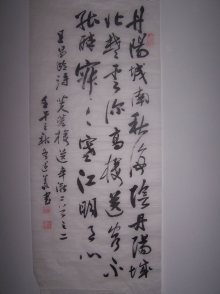 丹陽城南秋海陰丹陽城
北楚雲深高樓送客不
能醉寂々寒江明月心
王昌齡詩芙蓉樓送辛漸二首之二
壬午之秋書